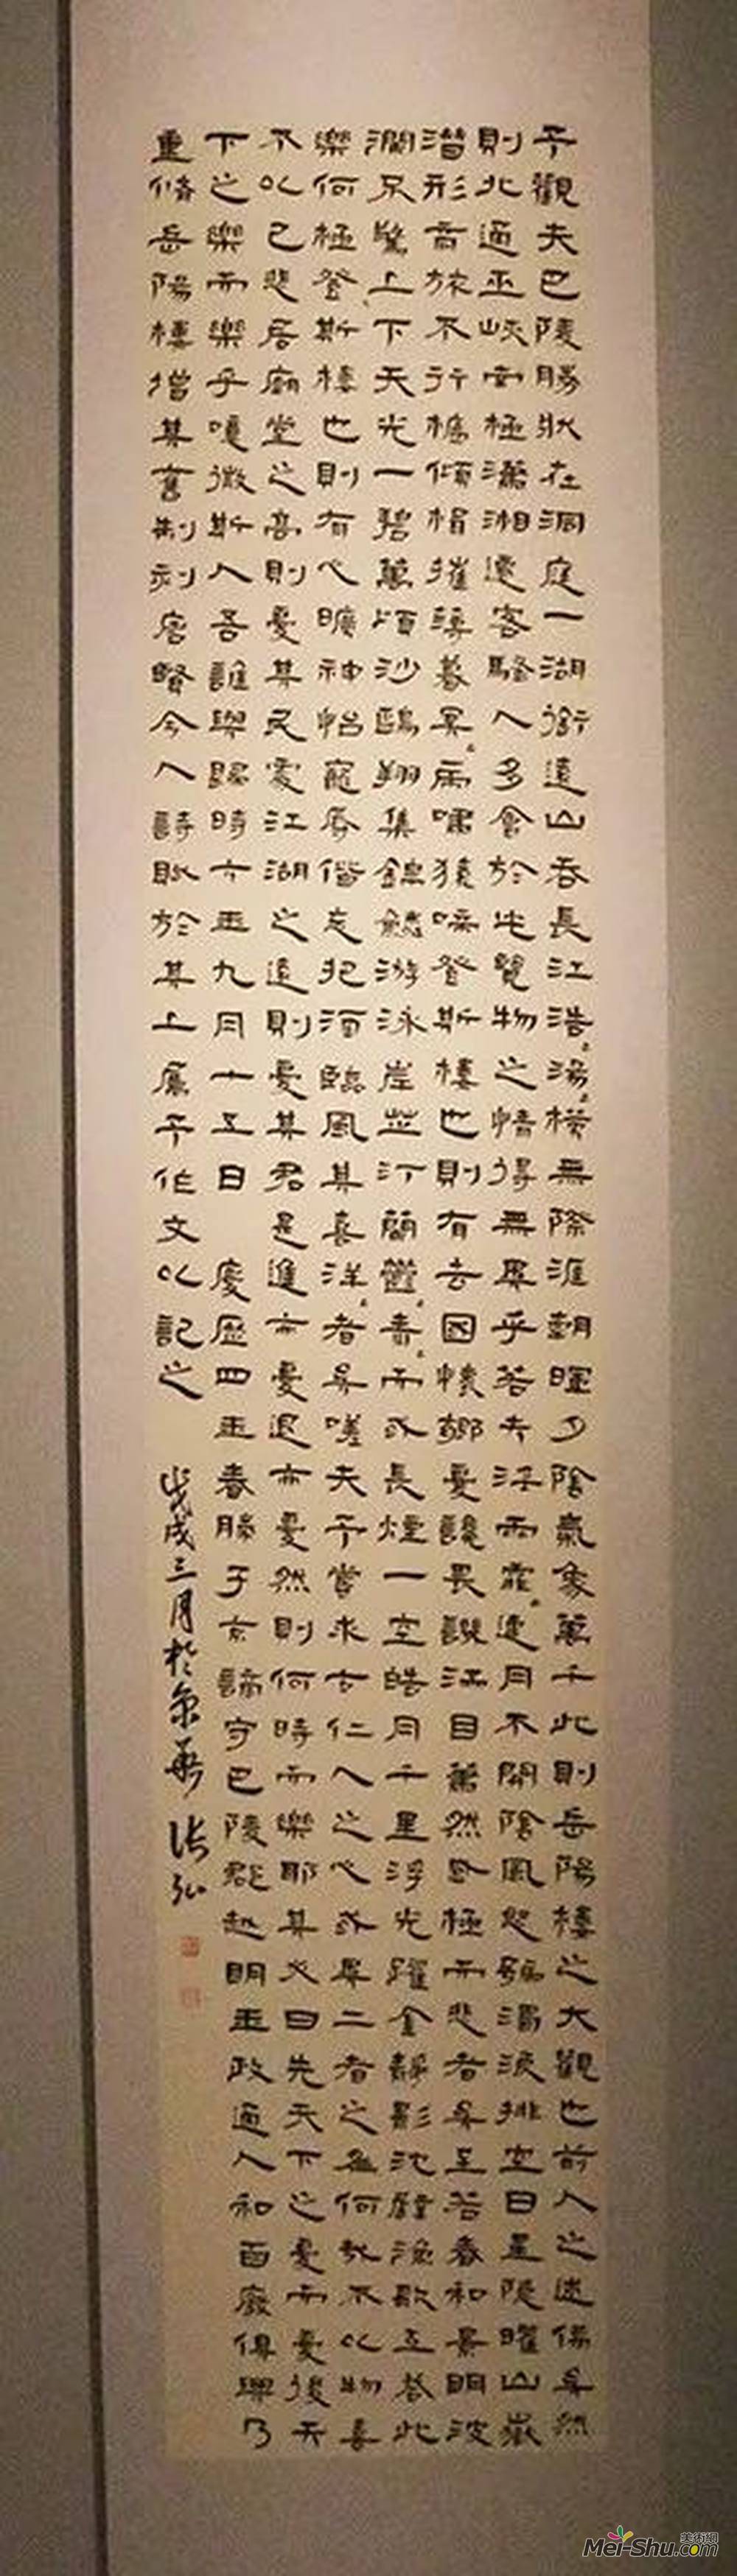 予觀夫巴陵勝狀在洞庭一湖銜遠山吞長江浩〻湯〻橫無際涯朝暉夕陰氣象萬千此則岳陽樓之大觀也前人之述備矣然
則北通巫峽南極瀟湘遷客騷人多會於此覽物之情得無異乎若夫淫雨霏〻連月不開陰風怒號濁浪排空日星隱曜山嶽
潛形商旅不行檣傾楫摧薄暮冥〻虎嘯猿啼登斯樓也則有去國懷鄉憂讒畏譏滿目蕭然感極而悲者矣至若春和景明波
瀾不驚上下天光一碧萬頃沙鷗翔集錦鱗游泳岸芷汀蘭鬱〻青〻而或長煙一空皓月千里浮光躍金靜影沈璧漁歌互答此
樂何極登斯樓也則有心曠神怡寵辱偕忘把酒臨風其喜洋〻者矣嗟夫予嘗求古仁人之心或異二者之為何哉不以物喜
不以己悲居廟堂之高則憂其民處江湖之遠則憂其君是進亦憂退亦憂然則何時而樂耶其必曰先天下之憂而憂後天
下之樂而樂乎噫微斯人吾誰與歸時六年九月十五日 慶歷四年春滕子京謫守巴陵郡越明年政通人和百廢俱興乃
重修岳陽樓增其舊制刻唐賢今人詩賦於其上屬予作文以記之 戊戌三月於京華 張弘
Mei-Shu.com 美術網